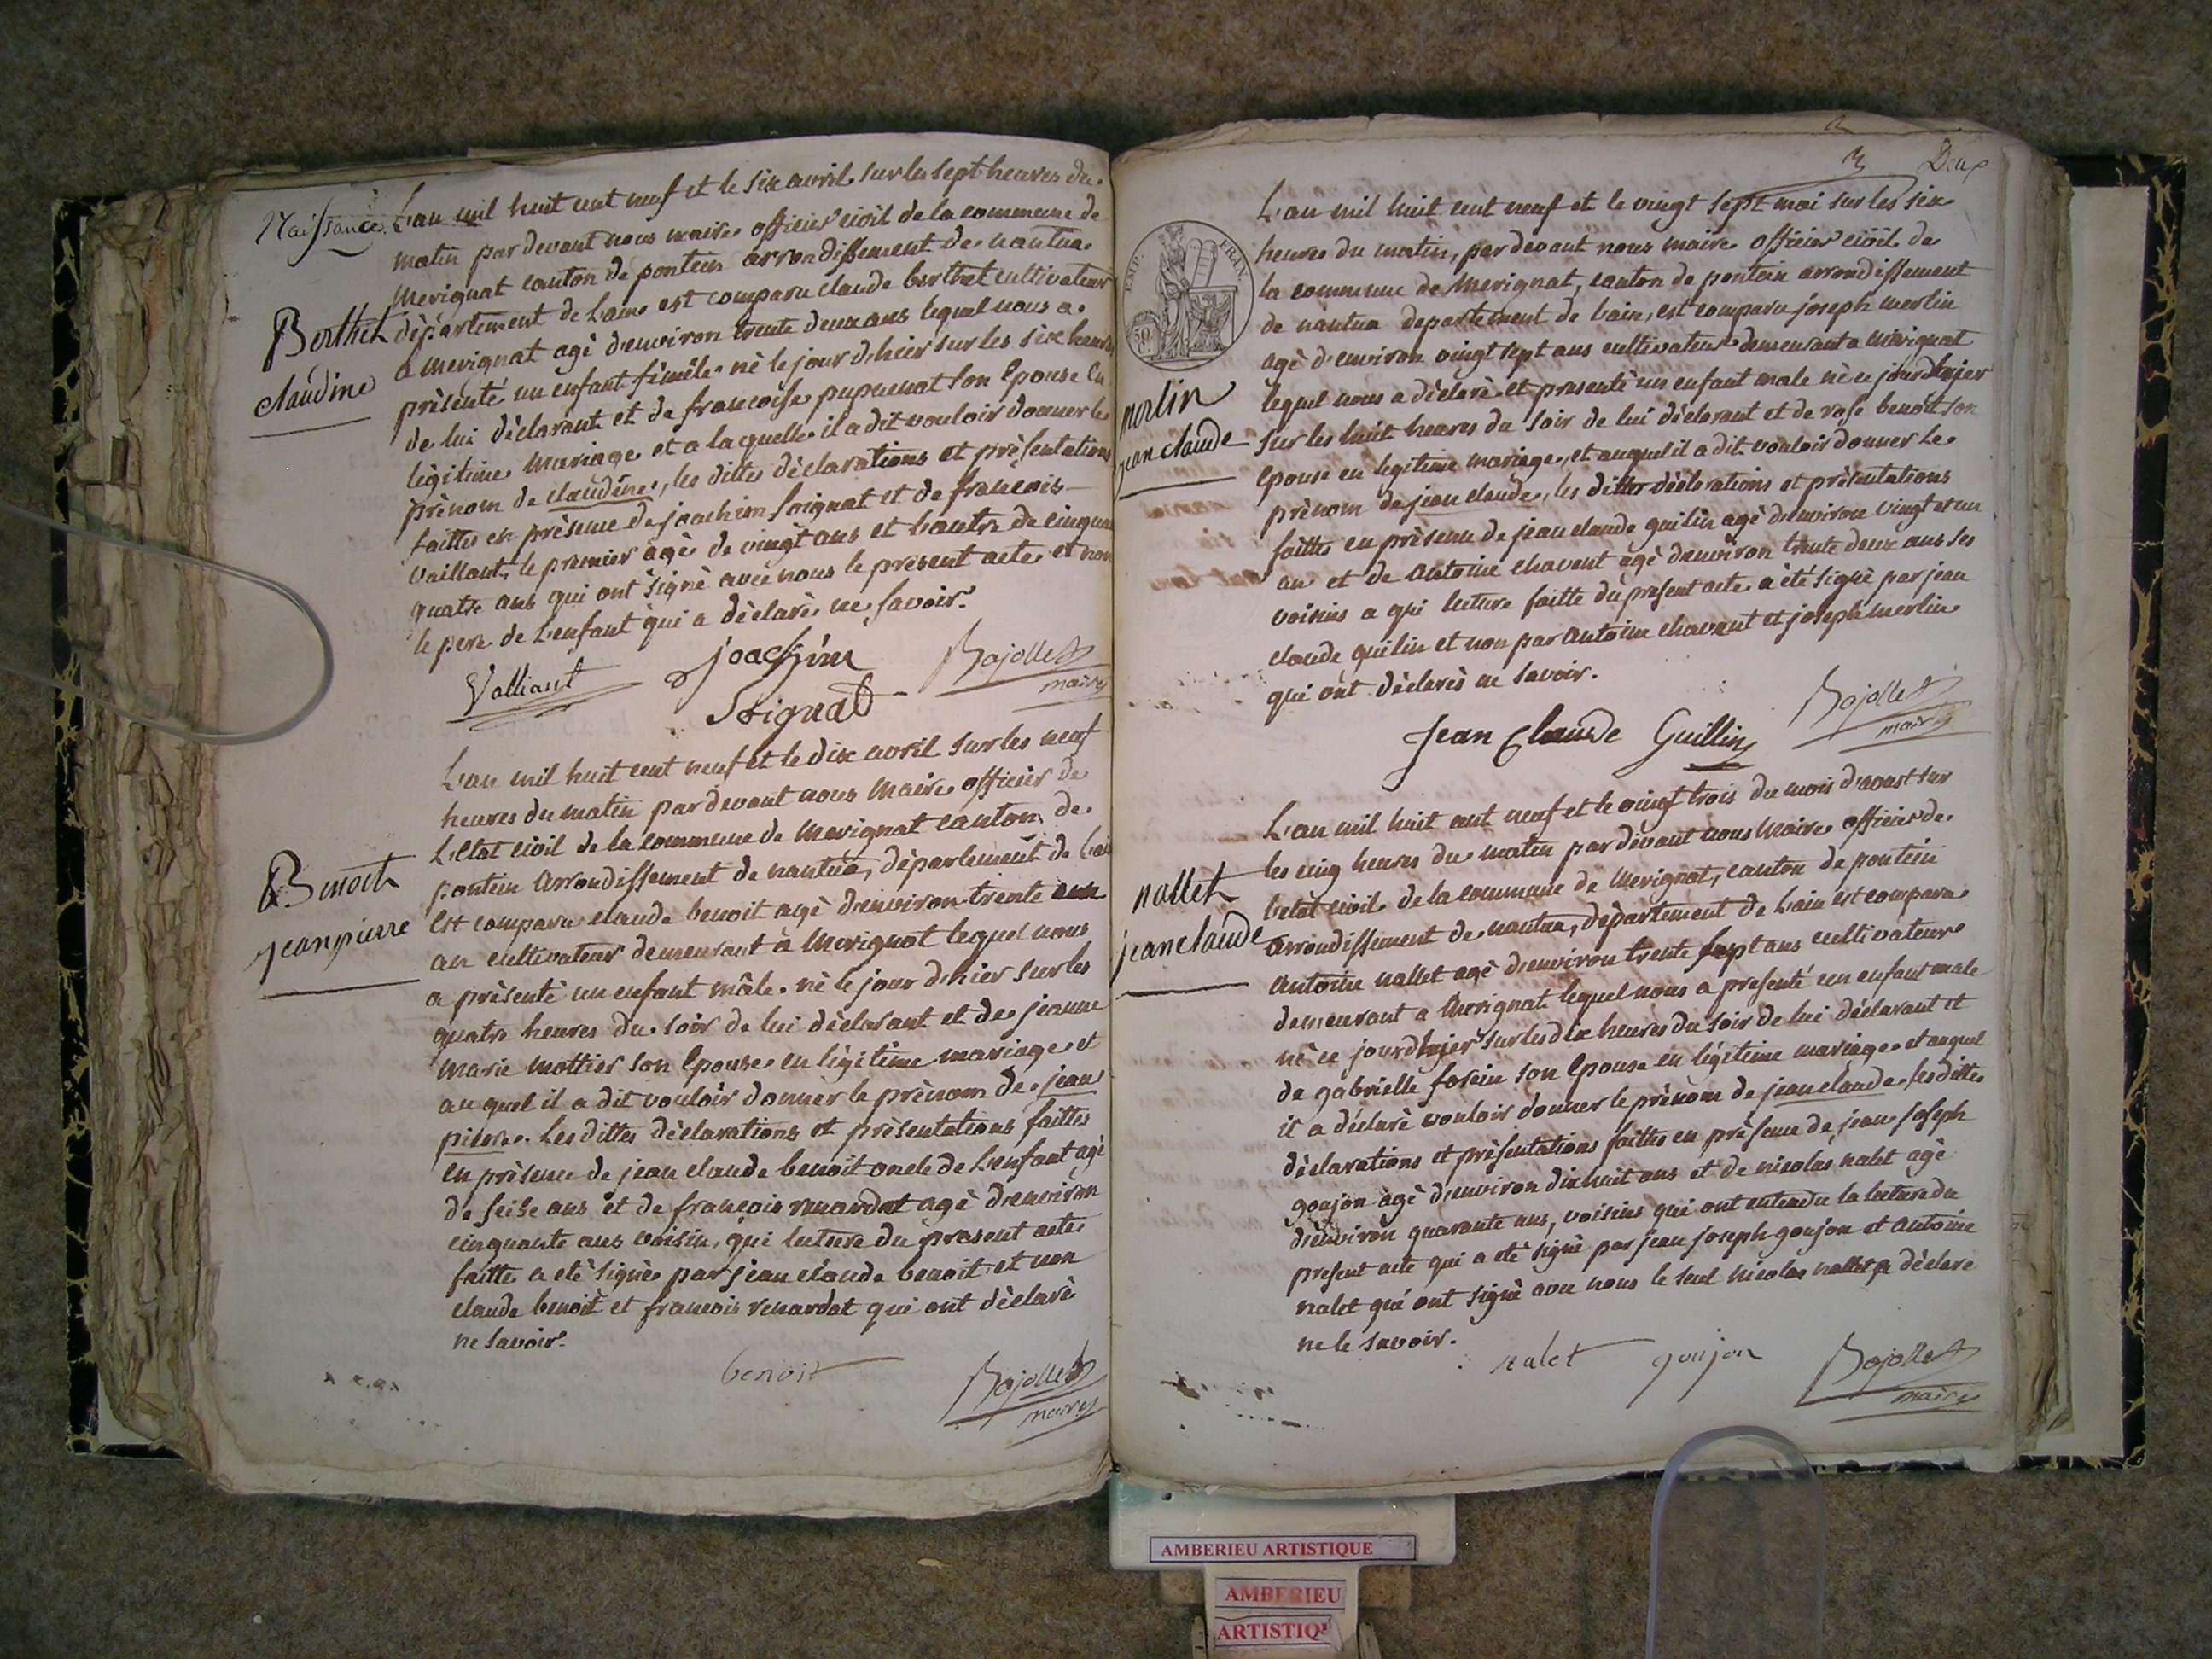 Naissance
L'an mil huit cent neuf et le six avril sur les sept heures du
matin par devant nous maire officier civil de la commune de
Merignat canton de poncin arrondissement de nantua
Berthet département de L'ain est comparu claude berthet cultivateur
claudine
a Merignat agé d'environ trente deux ans lequel nous a
présenté un enfant fémèle né le jour d'hier sur les six heures
de lui déclarant et de francoise pupuenat son Epouse En
légitime Mariage et a laquelle il a dit vouloir donner le
prénom de claudine, les dittes déclarations et présentations
faittes en présence de joachim soignat et de francois
vaillant, le premier agé de vingt ans et l'autre de cinquante
quatre ans qui ont signé avec nous le present acte et non
le pere de L'enfant qui a déclaré ne savoir.
Valliant joachim Bajollet
maire
Soignat
L'an mil huit cent neuf et le dix avril sur les neuf
heures du matin par devant nous Maire officier de
L'Etat civil de la commune de Merignat canton de
Benoit
jean pierre
pontin Arrondissement de nantua, département de L'ain
Est comparu claude benoit agé d'environ trente
an cultivateur demeurant à Merignat lequel nous
a présenté un enfant mâle né le jour d'hier sur les
quatre heures du soir de lui déclarant et de jeanne
Marie mottier son Epouse en légitime mariage et
auquel il a dit vouloir donner le prénom de jean
pierre. Les dittes déclarations et présentations faittes
En présence de jean claude benoit oncle de L'enfant agé
de seise ans et de francois renardat agé d'environ
cinquante ans voisin, qui lecture du present acte
faitte a eté signée par jean claude benoit et non
claude benoit et francois renardat qui ont déclaré
ne savoir.
benoit Bajollet
maire
Deux
L'an mil huit cent neuf et le vingt sept mai sur les six
heures du matin, par devant nous maire officier civil de
la commune de Merignat, canton de pontin arrondissement
de nantua departement de l'ain, est comparu joseph merlin
agé d'environ vingt sept ans cultivateur demeurant a Mérignat
EMP. FRAN.
merlin
jean claude
lequel nous a déclaré et presenté un enfant male né ce jourdhier
sur les huit heures du soir de lui déclarant et de rose benoit son
Epouse en legitime mariage, et auquel il a dit vouloir donner le
prénom de jean claude, les dittes déclarations et présentations
faittes en présence de jean claude guilin agé d'environ vingt et un
an et de Antoine chavent agé d'environ trente deux ans ses
voisins a qui lecture faitte du present acte a été signé par jean
claude guilin et non par Antoine chavent et joseph merlin
qui ont déclarés ne savoir.
Jean Claude Guillin Bajollet
maire
L'an mil huit cent neuf et le vingt trois du mois d'aoust sur
les cinq heures du matin par devant nous Maire officier de
nallet
jean claude
l'etat civil de la commune de Merignat, canton de pontin
arrondissement de nantua, département de L'ain est comparu
Antoine nallet agé d'environ trente sept ans cultivateur
demeurant a Merignat lequel nous a presenté un enfant male
né ce jourdhier sur les dix heures du soir de lui déclarant et
de gabrielle son Epouse en légitime mariage et auquel
il a déclaré vouloir donner le prénom de jean claude, les dittes
déclarations et présentations faittes en présence de jean joseph
goujon agé d'environ dix huit ans et de nicolas nalet agé
d'environ quarante ans, voisins qui ont entendu la lecture du
present acte qui a eté signé par jean joseph goujon et antoine
nalet qui ont signé avec nous le seul nicolas nallet a déclaré
ne le savoir.
nalet goujon Bajollet
maire
AMBERIEU ARTISTIQUE
AMBERIEU
ARTISTIQ